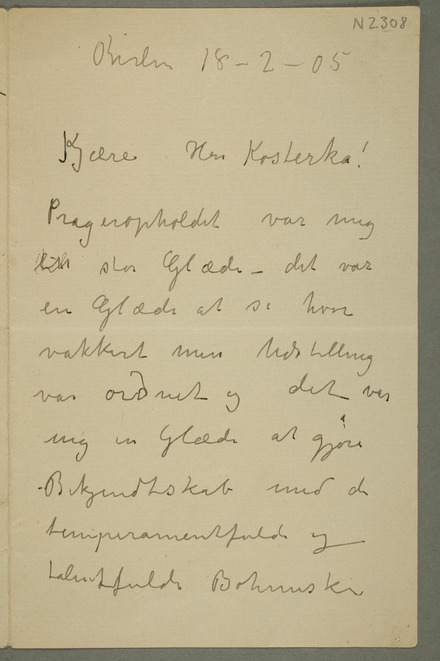 N 2308
Berlin 18-2-05
Kjære Hrr Kosterka!
Prageropholdet var mig
stor Glæde – det var
en Glæde at se hvor
vakkert min Udstilling
var ordnet og det var
mig en Glæde at gjøre
Bekjendtskab med de
temperamentfulde og
talentfulde Bohmiske